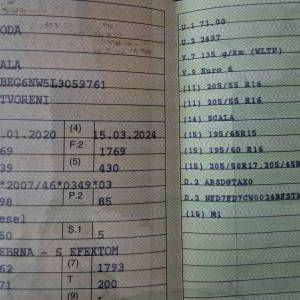 ODA
ALA
BEG6NW5L3059761
TVORENI
.01.2020 (4) 15.03.2024
69 F.2 1769
39 (5) 430
*2007/46*0349*03
98 P.2 85
esel
50 S.1 5
EBRNA - S EFEKTOM
62 (7) 1793
71 T 200
(9) -
U.1 71.00
U.2 2437
V.7 135 g/km (WLTP)
V.9 Euro 6
(11) 205/55 R16
(11) 205/55 R16
(14) SCALA
(15) 195/65R15
(15) 195/60 R16
(15) 205/50R17,205/45R
D.2 ABSD*TAX0
(16) M1